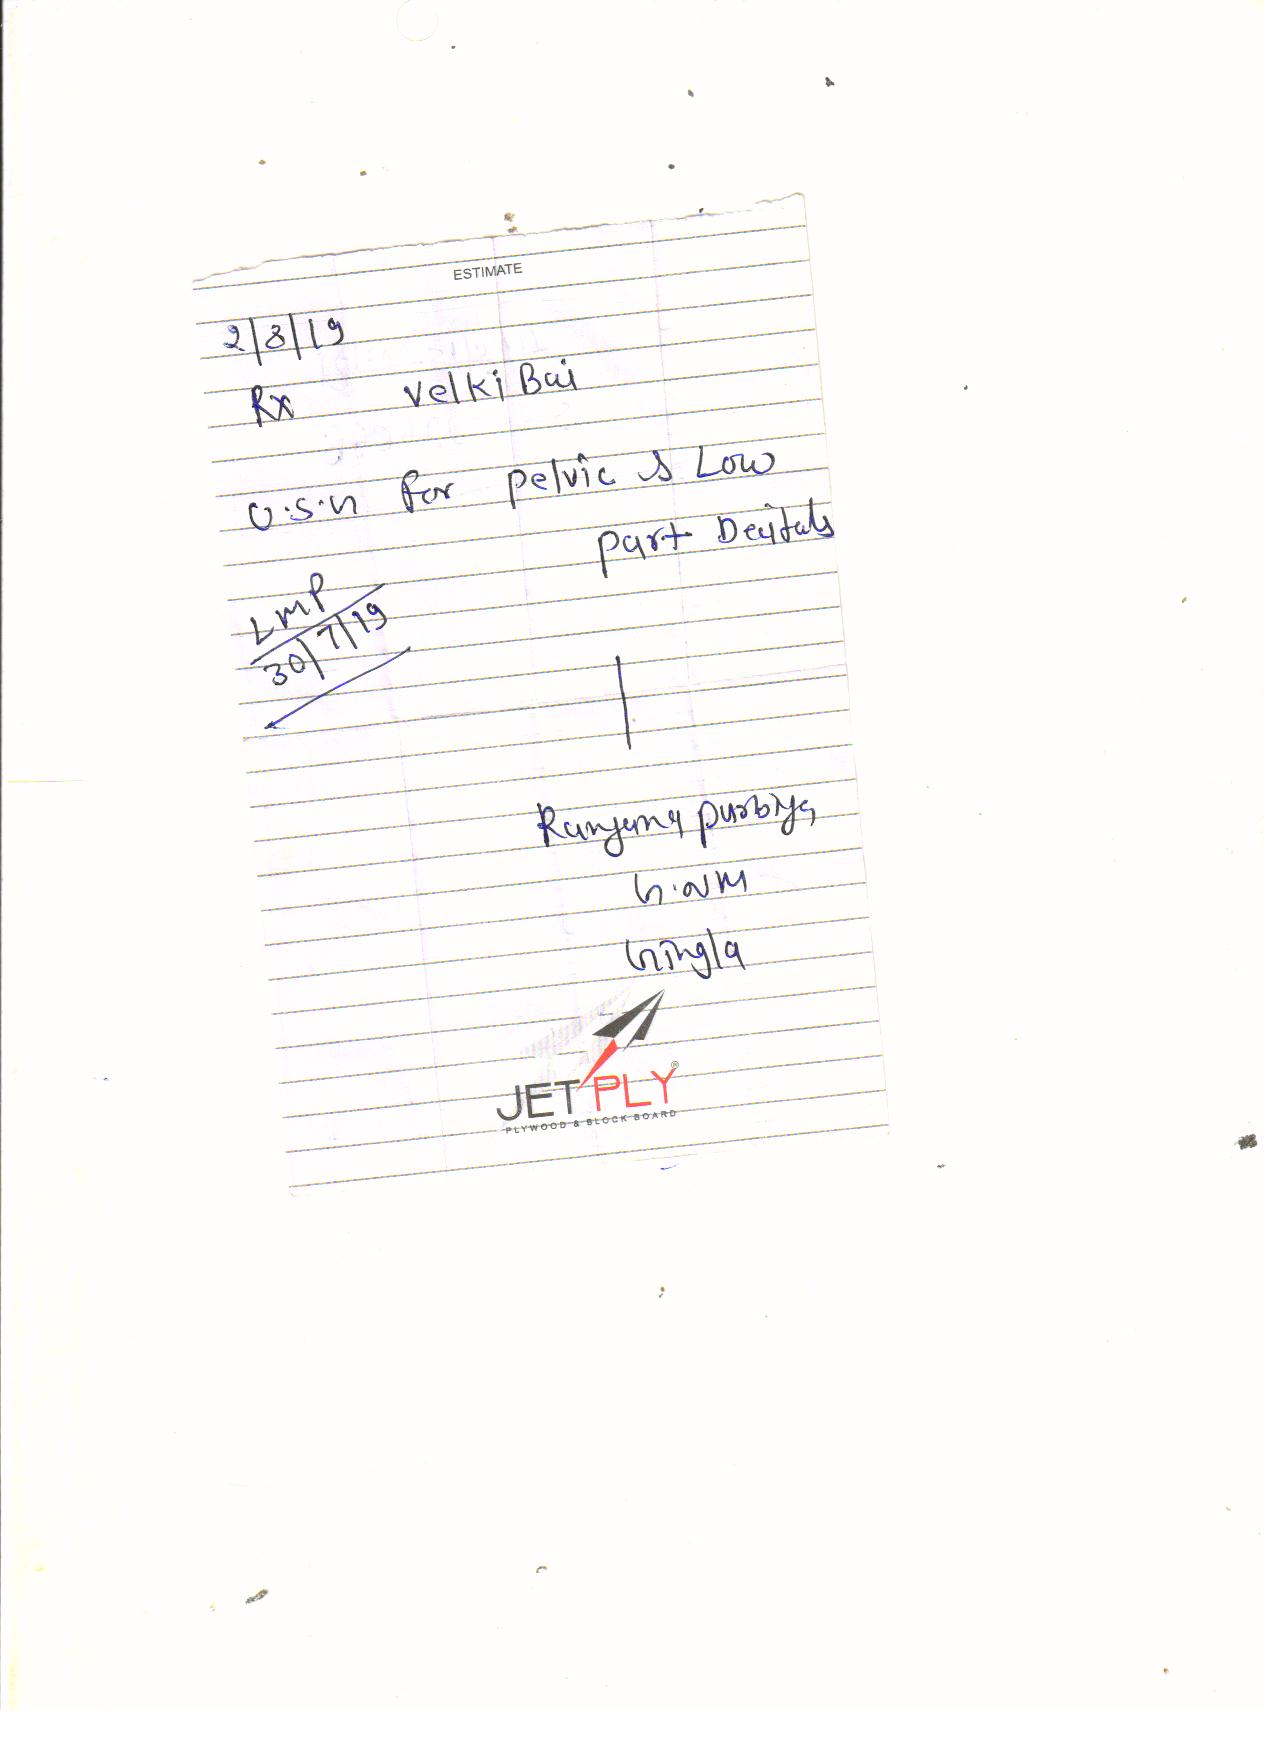 ESTIMATE
2/8/19
Rx Velki Bai
U.S.G for pelvic & Low
part Deitals
LMP
30/7/19
Ranjana purbiya
G.NM
Gingla
JET PLY®
PLYWOOD & BLOCK BOARD